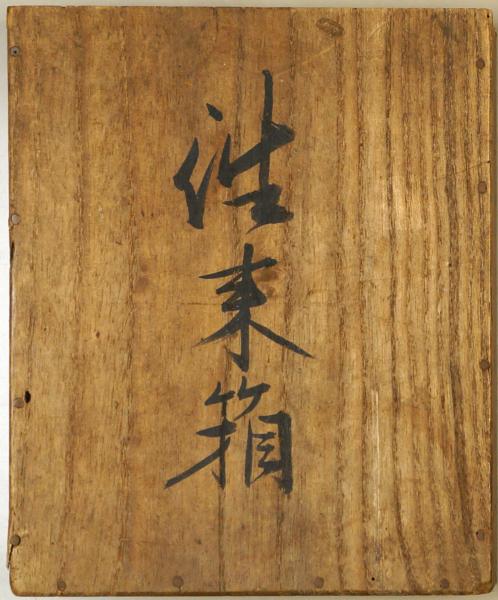 往来箱